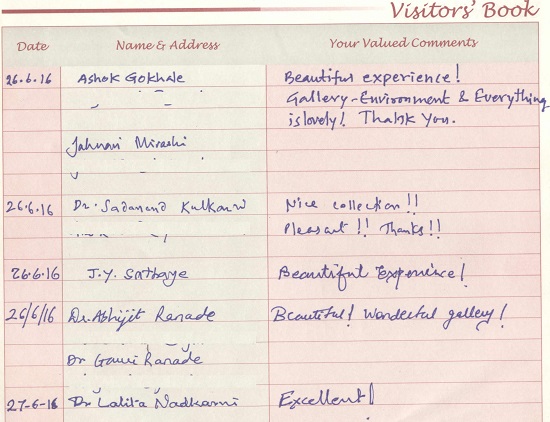 Visitors' Book
Date Name & Address Your Valued Comments
26.6.16 Ashok Gokhale Beautiful experience!
Gallery-Environment & Everything
is lovely! Thank You.
Jahnavi Mirashi
26.6.16 Dr. Sadanand Kulkarni Nice collection!!
Pleasant!! Thanks!!
26.6.16 J.Y. Sathaye Beautiful Experience!
26/6/16 Dr. Abhijit Ranade Beautiful! Wonderful gallery!
Dr Gauri Ranade
27-6-16 Dr Lalita Nadkarni Excellent!